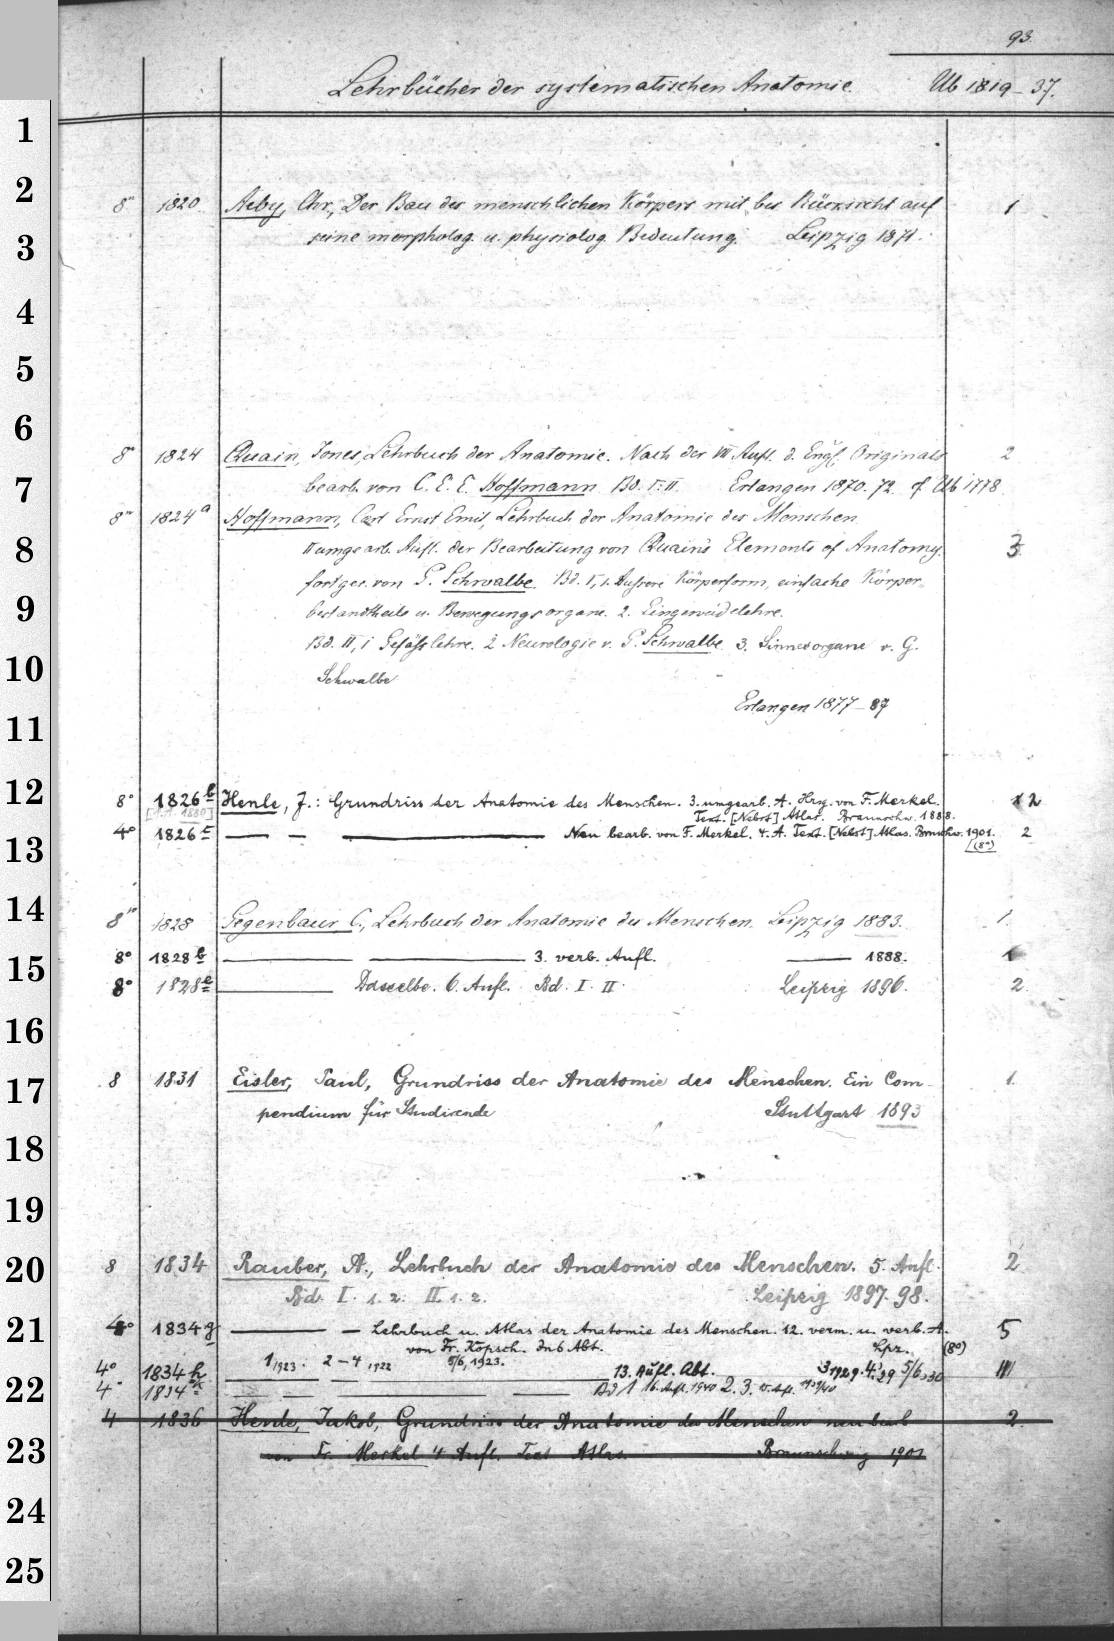 93.
Lehrbücher der systematischen Anatomie. Ub 1819-37.
1
2
8° 1820. Aeby, Chr., Der Bau des menschlichen Körpers mit bes. Rücksicht auf 1
3
seine morpholog. u. physiolog. Bedeutung. Leipzig 1871.
4
5
6
8° 1824 Quain, Jones, Lehrbuch der Anatomie. Nach der VII Aufl. d. Engl. Originals 2
7
bearb. von C. E. E. Hoffmann Bd. I-II. Erlangen 1870-72. cf Ub 1778
8° 1824a Hoffmann, Carl Ernst Emil, Lehrbuch der Anatomie des Menschen.
8
II umgearb. Aufl. der Bearbeitung von Quain's Elements of Anatomy. 3
fortges. von G. Schwalbe. Bd. I,1. Äussere Körperform, einfache Körper-
9
bestandtheile u. Bewegungsorgane. 2. Eingeweidelehre.
Bd. II,1 Gefässlehre. 2 Neurologie v. G. Schwalbe 3. Sinnesorgane v. G.
10
Schwalbe
Erlangen 1877-87
11
12
8° 1826b Henle, J.: Grundriss der Anatomie des Menschen. 3. umgearb. A. Hrsg. von F. Merkel. 2
Text. [Nebst] Atlas. Braunschw. 1888.
4° 1826c — — — Neu bearb. von F. Merkel. 4. A. Text. [Nebst] Atlas. Braunschw. 1901. 2
13
[(8°)
14
8° 1828 Gegenbaur C., Lehrbuch der Anatomie des Menschen. Leipzig 1883. 1.
15
8° 1828b — — 3. verb. Aufl. — 1888. 1
8° 1828e — Dasselbe. 6. Aufl. Bd. I-II. Leipzig 1896. 2
16
17
8 1831 Eisler, Paul, Grundriss der Anatomie des Menschen. Ein Com- 1.
pendium für Studirende Stuttgart 1893
18
19
20
8 1834 Rauber, A., Lehrbuch der Anatomie des Menschen. 5. Aufl. 2
Bd. I. 1. 2. II 1. 2. Leipzig 1897-98.
21
4° 1834g — — Lehrbuch u. Atlas der Anatomie des Menschen. 12. verm. u. verb. A. 5
von Fr. Kopsch. In 6 Abt. Lpz. (8°)
1 1923. 2-4 1922 5/6, 1923.
4° 1834h — — — 13. Aufl. Abt. 3 1929. 4. 29 5/6 1930 III
22
— — — — Bd 1 16. Aufl. 1940 2. 3. 15. Aufl.
4 1836 Henle, Jakob, Grundriss der Anatomie des Menschen neu bearb 2.
23
von Fr. Merkel 4 Aufl. Text Atlas. Braunschweig 1901
24
25